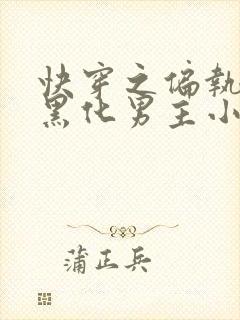 快穿之偏執
黑化男主小
蒲正兵